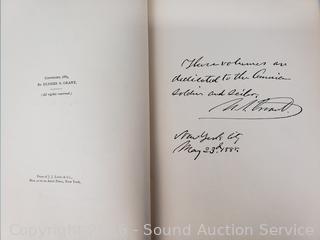 COPYRIGHT, 1885,
BY ULYSSES S. GRANT.
(All rights reserved.)
Press of J. J. Little & Co.,
Nos. 10 to 20 Astor Place, New York.
These volumes are
dedicated to the American
soldier and sailor.
U. S. Grant.
New York City
May 23d 1885.
Copyright 2016 - Sound Auction Service